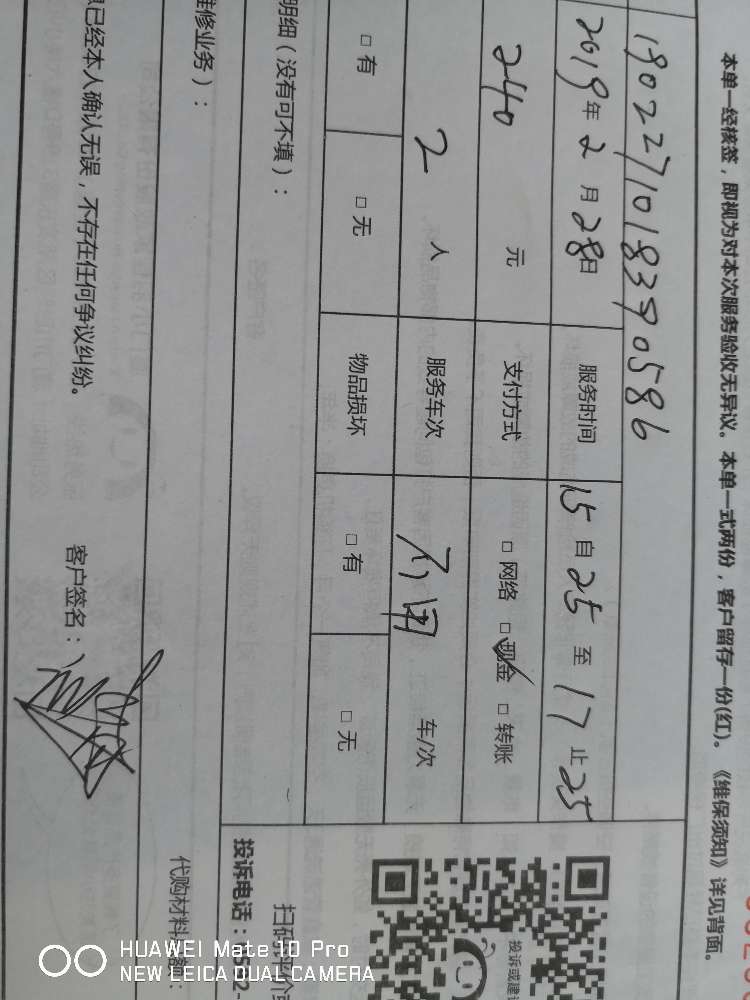 本单一经核签，即视为对本次服务验收无异议。本单一式两份，客户留存一份(红)。《维保须知》详见背面。
190227101839 0586
2019年2月28日 服务时间 15自25至17止25
240元 支付方式 □网络 □现金 □转账
2人 服务车次 不用 车/次
□有 □无 物品损坏 □有 □无
明细（没有可不填）：
维修业务）：
已经本人确认无误，不存在任何争议纠纷。 客户签名：
投诉或建议
投诉电话：
代购材料
HUAWEI Mate 10 Pro
NEW LEICA DUAL CAMERA